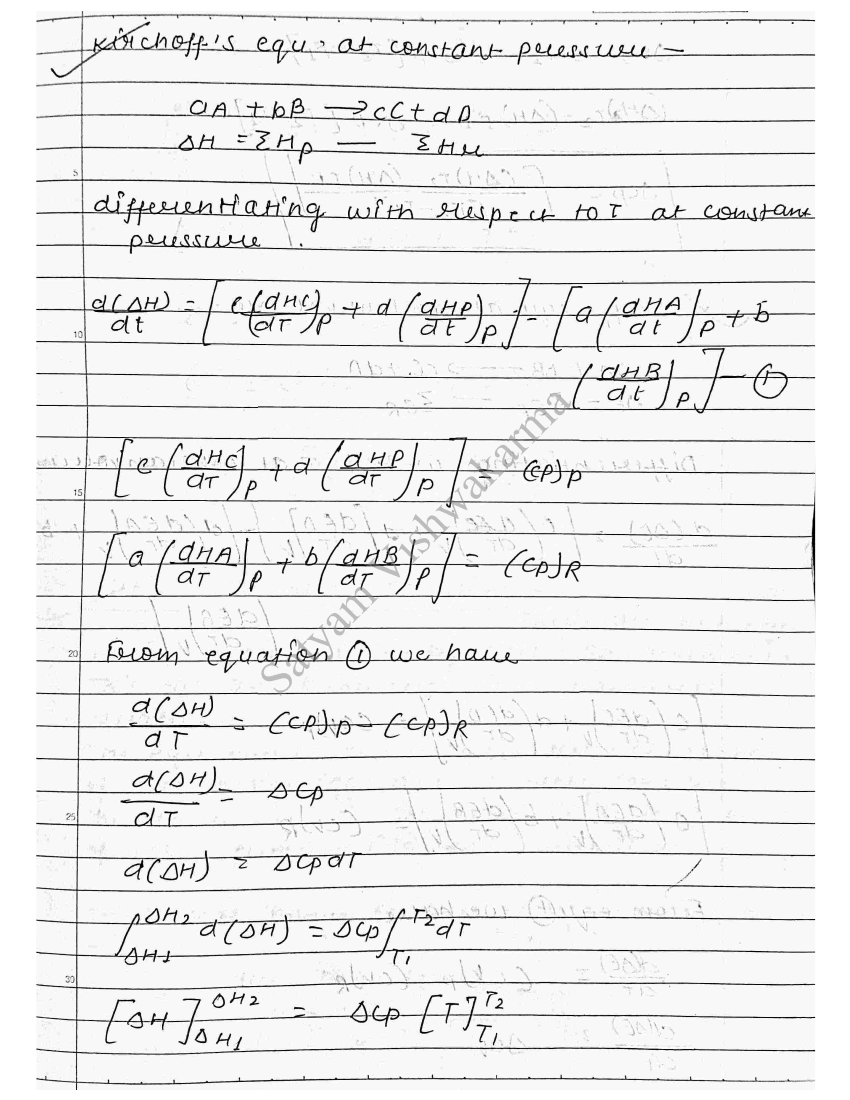 Kirchoff's equ. at constant pressure –
aA + bB → cC + dD
ΔH = ΣHp — ΣHr
5
differentiating with respect to T at constant
pressure.
d(ΔH)/dt = [c(dHC/dT)p + d(dHD/dt)p] - [a(dHA/dt)p + b
10
(dHB/dt)p] — ①
[c(dHC/dT)p + d(dHD/dT)p] = (CP)p
15
[a(dHA/dT)p + b(dHB/dT)p] = (CP)R
20 From equation ① we have
d(ΔH)/dT = (CP)p - (CP)R
d(ΔH)/dT = ΔCp
25
d(ΔH) = ΔCp dT
∫ΔH1^ΔH2 d(ΔH) = ΔCp ∫T1^T2 dT
30
[ΔH]ΔH1^ΔH2 = ΔCp [T]T1^T2
Satyam Vishwakarma